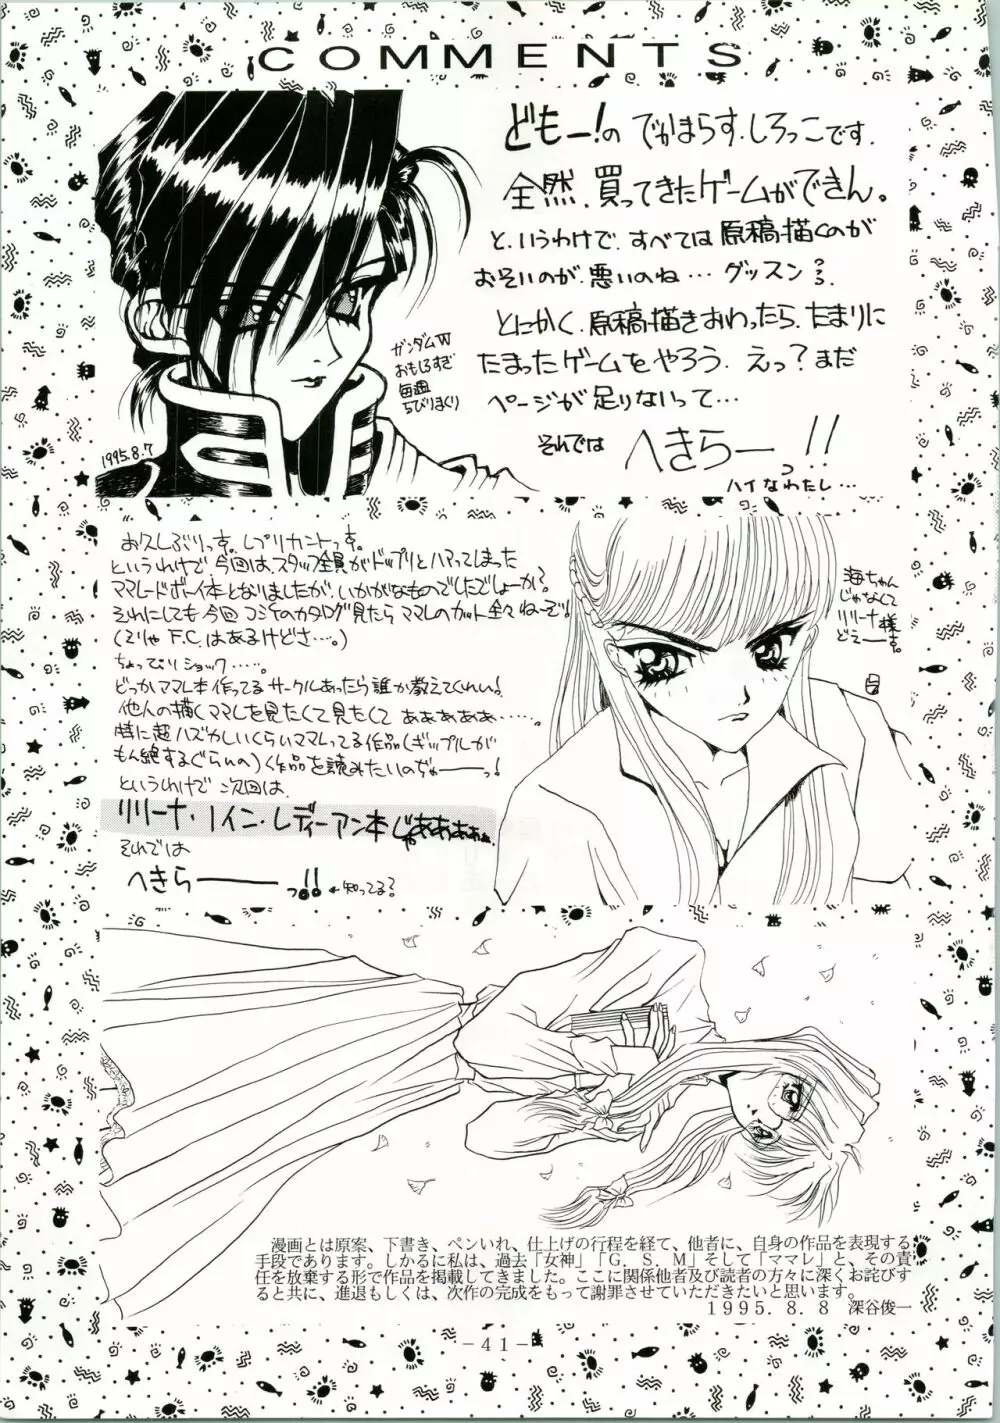 COMMENTS
どもー!の でかまらす.しろっこです.
全然.買ってきたゲームができん。
と.いうわけで.すべては原稿描くのが
おそいのが.悪いのね…グッスン
とにかく.原稿描きおわったら.たまりに
たまったゲームをやろう.えっ?まだ
ページが足りないって…
それでは へきらーっ!!
ハイなわたし…
ガンダムW
おもしろすぎ
毎週
ちびりまくり
1995.8.7
お久しぶりっす。レプリカントっす。
というわけで.今回は.スタッフ全員がドップリとハマってしまった
ママレードボーイ本となりましたが.いかがなものでしたでしょーか?
それにしても今回コミケのカタログ見たらママレのカット全々ねーぞ!
(そりゃF.C.はあるけどさ…。)
ちょっぴりショック……。
どっかママレ本作ってるサークルあったら誰か教えてくれい!
他人の描くママレを見たくて見たくて ああああああ……。
特に超ハズかしいくらいママレってる作品(ギップルが
もん絶するぐらいの)作品を読みたいのぢゃーーっ!
というわけで次回は.
リリーナ・ノイン・レディーアン本じゃあああああ.
それでは
へきらーーーっ!! ←知ってる?
海ちゃん
じゃなくて
リリーナ様
どえーーす。
漫画とは原案、下書き、ペンいれ、仕上げの行程を経て、他者に、自身の作品を表現する
手段であります。しかるに私は、過去「女神」「G．S．M」そして「ママレ」と、その責
任を放棄する形で作品を掲載してきました。ここに関係他者及び読者の方々に深くお詫びす
ると共に、進退もしくは、次作の完成をもって謝罪させていただきたいと思います。
1995．8．8 深谷俊一
-41-